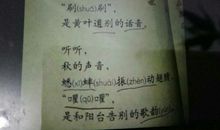 “刷(shuā)刷”，
是黄叶道别的话音。
听听，
秋的声音，
蟋(xī)蟀(shuài)振(zhèn)动翅膀，
“㘗(qǔ)㘗”，
是和阳台告别的歌韵(yùn)。